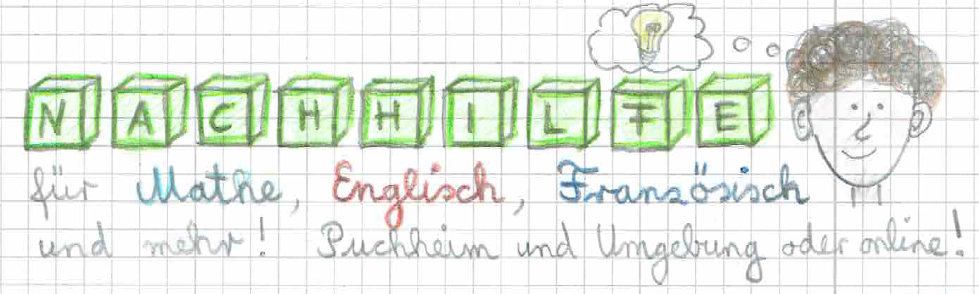 NACHHILFE
für Mathe, Englisch, Französisch
und mehr! Puchheim und Umgebung oder online!